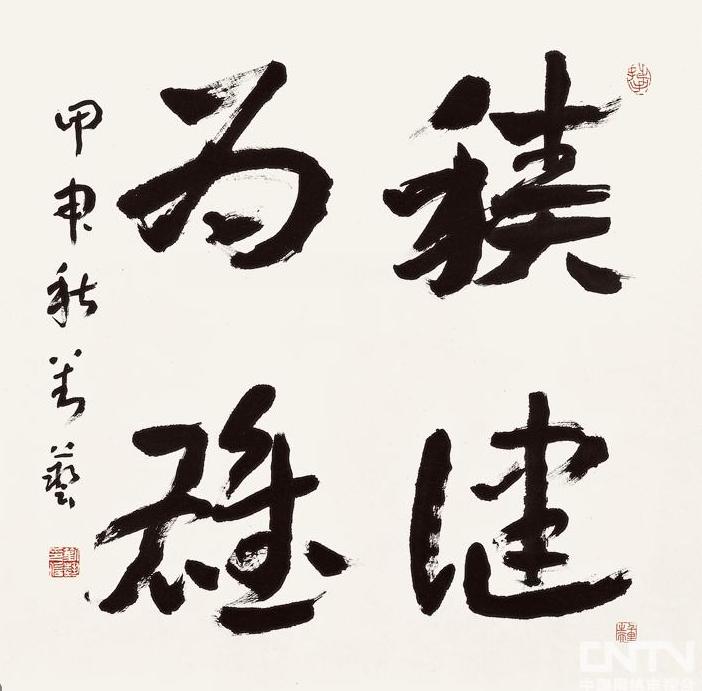 積健
为雄
甲申秋
藝
CNTV
中国网络电视台